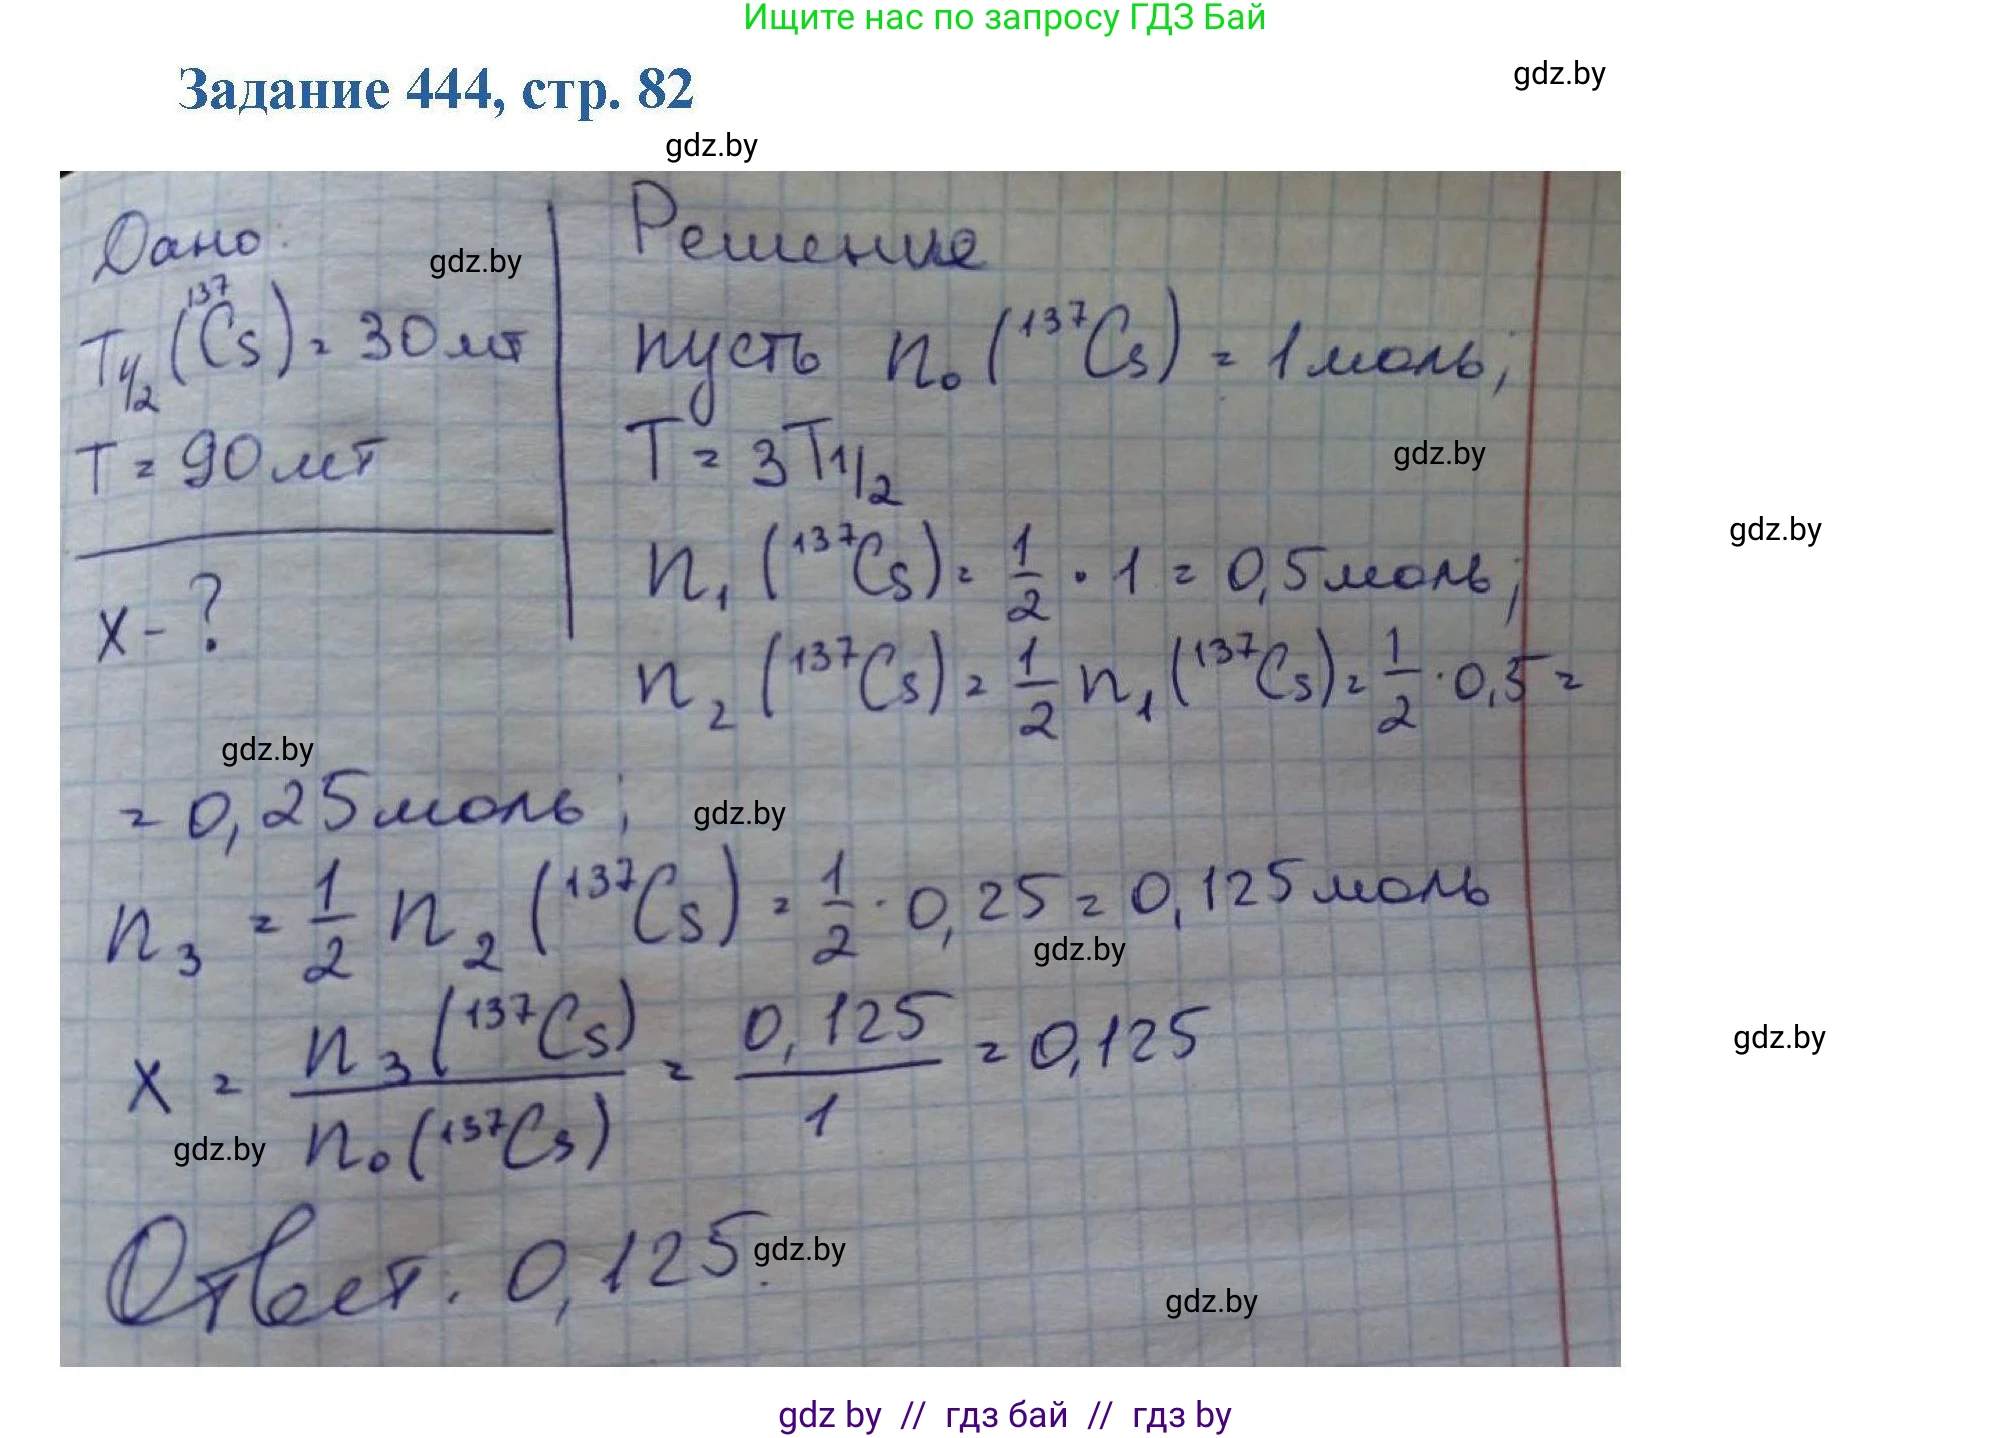 Ищите нас по запросу ГДЗ Бай
gdz.by
Задание 444, стр. 82
gdz.by
Дано:
Решение
gdz.by
T1/2 (137Cs) = 30 лет
пусть n0 (137Cs) = 1 моль;
T = 90 лет
T = 3T1/2
gdz.by
gdz.by
n1 (137Cs) = 1/2 · 1 = 0,5 моль;
x - ?
n2 (137Cs) = 1/2 n1 (137Cs) = 1/2 · 0,5 =
gdz.by
= 0,25 моль;
gdz.by
n3 = 1/2 n2 (137Cs) = 1/2 · 0,25 = 0,125 моль
gdz.by
x = n3 (137Cs) / n0 (137Cs) = 0,125 / 1 = 0,125
gdz.by
gdz.by
Ответ: 0,125.
gdz.by
gdz.by
gdz by // гдз бай // гдз by